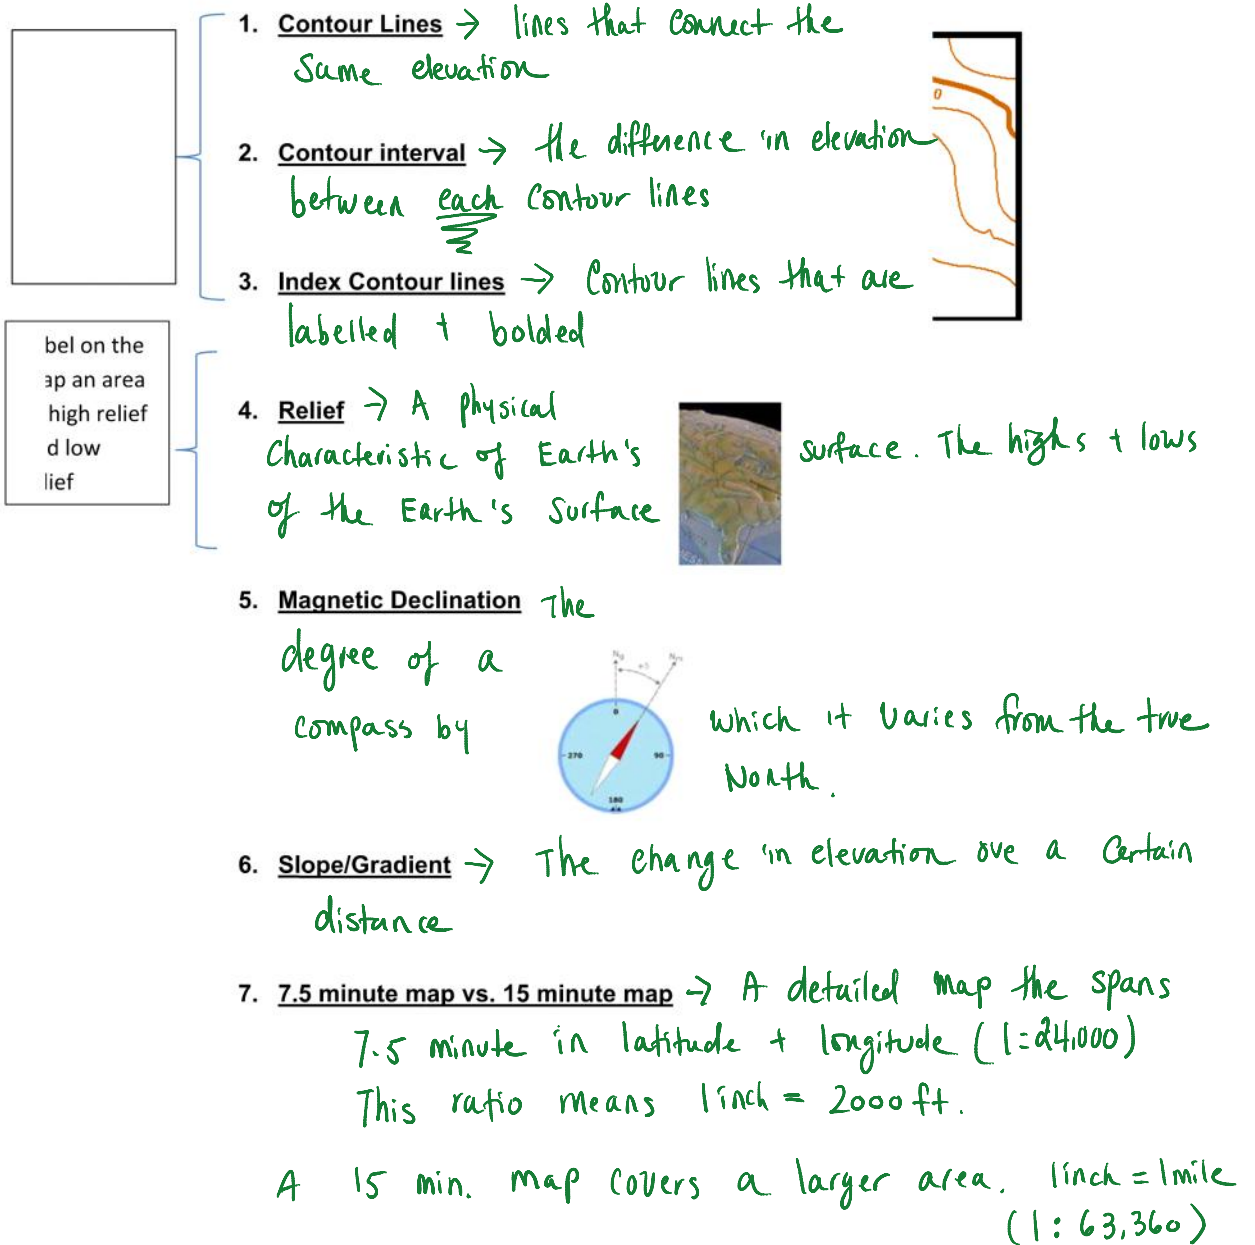 1. Contour Lines → lines that connect the
same elevation
0
2. Contour interval → the difference in elevation
between each contour lines
3. Index Contour lines → Contour lines that are
labelled + bolded
bel on the
ap an area
high relief
d low
lief
4. Relief → A physical
Characteristic of Earth's surface. The highs + lows
of the Earth's Surface
5. Magnetic Declination The
degree of a
compass by which it varies from the true
North.
0
270 90
180
6. Slope/Gradient → The change in elevation ove a certain
distance
7. 7.5 minute map vs. 15 minute map → A detailed map the spans
7.5 minute in latitude + longitude (1=24,000)
This ratio means 1inch = 2000 ft.
A 15 min. map covers a larger area. 1inch = 1mile
(1: 63,360)